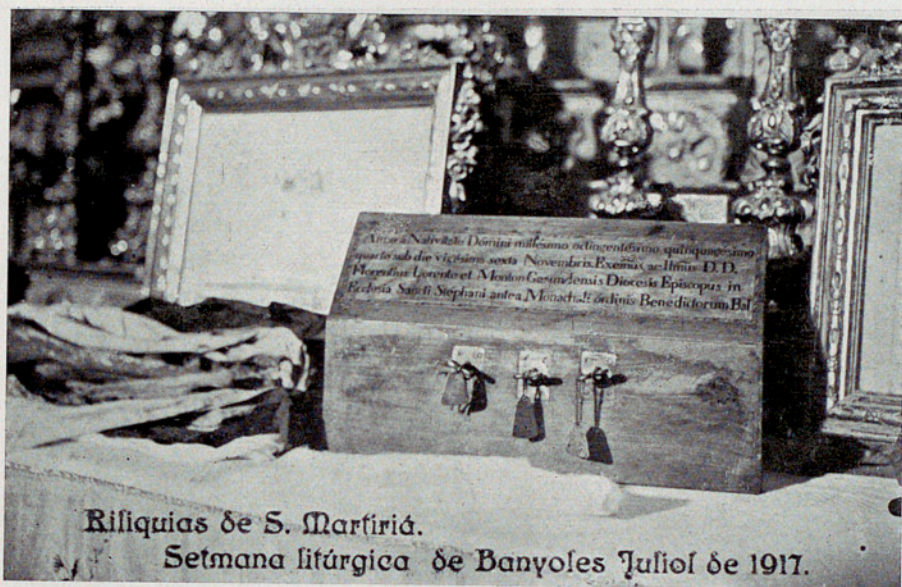 Anno a Nativitate Domini millesimo octingentesimo quinquagesimo
quarto sub die vicesima sexta Novembris. Excmus ac Illmus D. D.
Florentius Lorente et Monton Gerundensis Diocesis Episcopus in
Ecclesia Sancti Stephani antea Monachali ordinis Benedictorum Bal
Riliquias de S. Martiriá.
Setmana litúrgica de Banyoles Juliol de 1917.